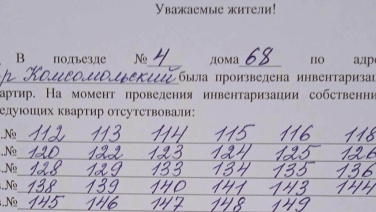 Уважаемые жители!
В подъезде № 4 дома 68 по адре
р Комсомольский была произведена инвентаризац
артир. На момент проведения инвентаризации собственни
едующих квартир отсутствовали:
.№ 112 113 114 115 116 118
.№ 120 122 123 124 125 126
.№ 128 129 133 134 135 136
.№ 138 139 140 141 143 144
.№ 145 146 147 148 149